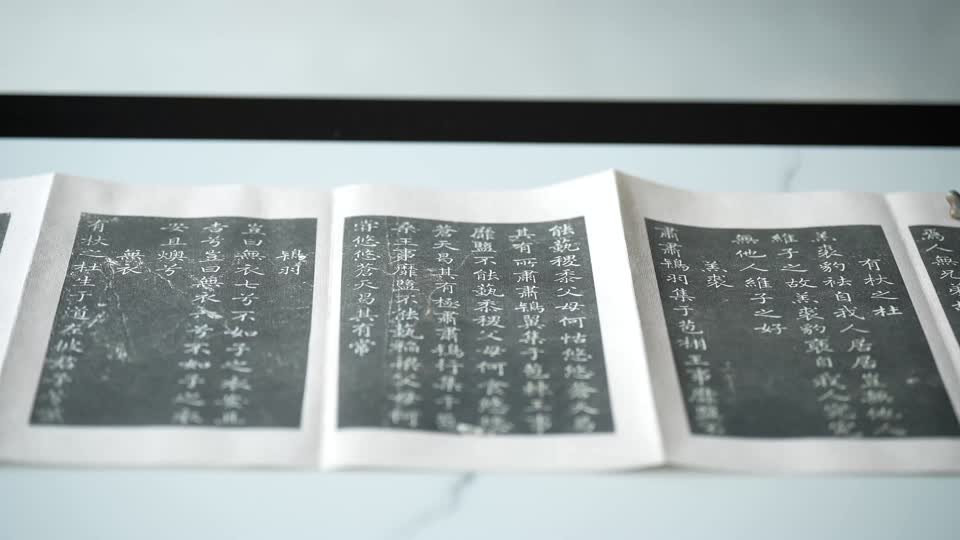 焉人無兄弟
有杕之杜
羔裘豹袪自我人居居豈無他人
維子之故羔裘豹褎自我人究究
無他人維子之好
羔裘
肅肅鴇羽集于苞栩王事靡盬不
能蓺稷黍父母何怙悠悠蒼天曷
其有所肅肅鴇翼集于苞棘王事
靡盬不能蓺黍稷父母何食悠悠
蒼天曷其有極肅肅鴇行集于苞
桑王事靡盬不能蓺稻粱父母何
嘗悠悠蒼天曷其有常
鴇羽
豈曰無衣七兮不如子之衣安且
吉兮豈曰無衣六兮不如子之衣
安且燠兮
無衣
有杕之杜生于道左彼君子兮噬